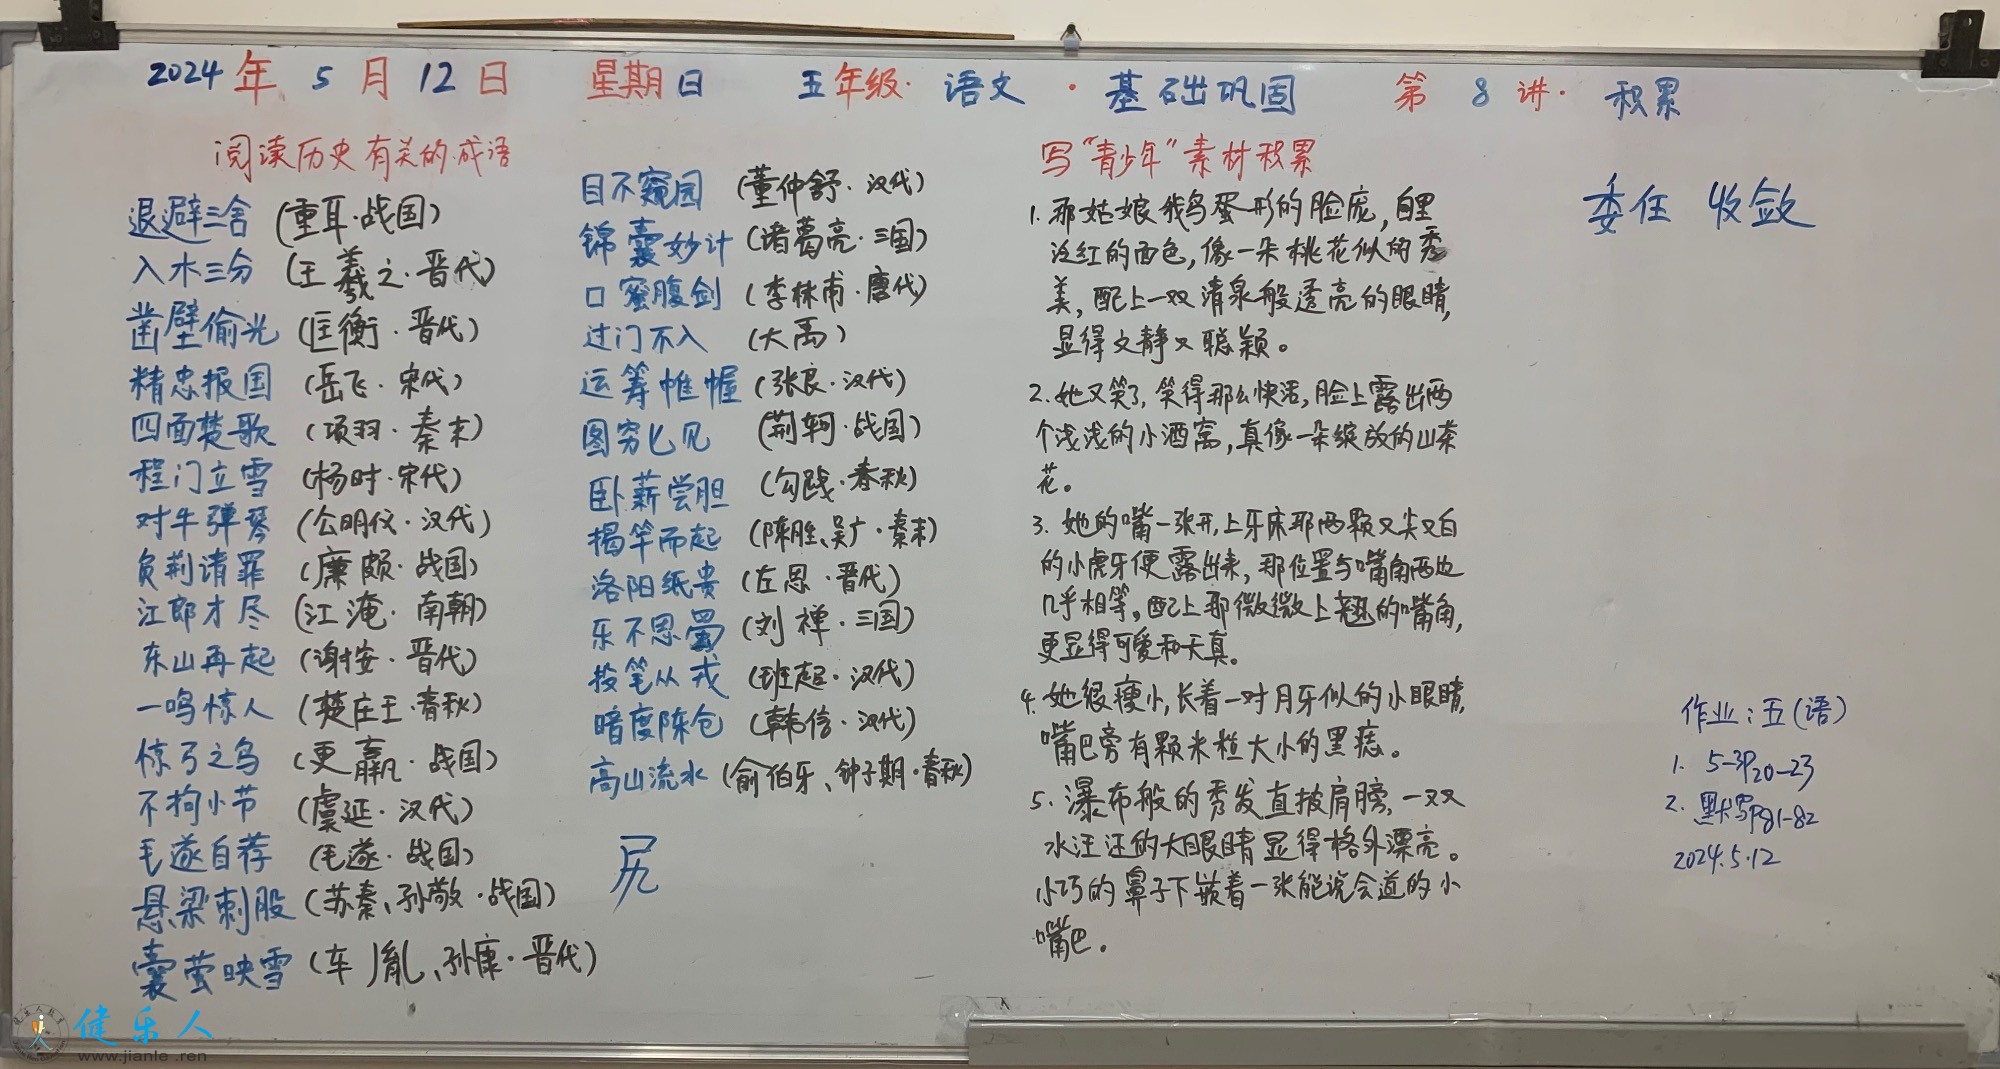 2024年5月12日 星期日 五年级·语文·基础巩固 第8讲·积累
阅读历史有关的成语
退避三舍(重耳·战国)
入木三分(王羲之·晋代)
凿壁偷光(匡衡·晋代)
精忠报国(岳飞·宋代)
四面楚歌(项羽·秦末)
程门立雪(杨时·宋代)
对牛弹琴(公明仪·汉代)
负荆请罪(廉颇·战国)
江郎才尽(江淹·南朝)
东山再起(谢安·晋代)
一鸣惊人(楚庄王·春秋)
惊弓之鸟(更羸·战国)
不拘小节(虞延·汉代)
毛遂自荐(毛遂·战国)
悬梁刺股(苏秦、孙敬·战国)
囊萤映雪(车胤、孙康·晋代)
目不窥园(董仲舒·汉代)
锦囊妙计(诸葛亮·三国)
口蜜腹剑(李林甫·唐代)
过门不入(大禹)
运筹帷幄(张良·汉代)
图穷匕见(荆轲·战国)
卧薪尝胆(勾践·春秋)
揭竿而起(陈胜、吴广·秦末)
洛阳纸贵(左思·晋代)
乐不思蜀(刘禅·三国)
投笔从戎(班超·汉代)
暗度陈仓(韩信·汉代)
高山流水(俞伯牙、钟子期·春秋)
尻
写"青少年"素材积累
1.那姑娘鹅蛋形的脸庞,白里
泛红的面色,像一朵桃花似的秀
美,配上一双清泉般透亮的眼睛,
显得文静又聪颖。
2.她又笑了,笑得那么快活,脸上露出两
个浅浅的小酒窝,真像一朵绽放的山茶
花。
3.她的嘴一张开,上牙床那两颗又尖又白
的小虎牙便露出来,那位置与嘴角两边
几乎相等。配上那微微上翘的嘴角,
更显得可爱和天真。
4.她很瘦小,长着一对月牙似的小眼睛,
嘴巴旁有颗米粒大小的黑痣。
5.瀑布般的秀发直披肩膀,一双
水汪汪的大眼睛显得格外漂亮。
小巧的鼻子下嵌着一张能说会道的小
嘴巴。
委任 收敛
作业:五(语)
1. 5-3P20-23
2.默写P81-82
2024.5.12
健乐人
www.jianle.ren